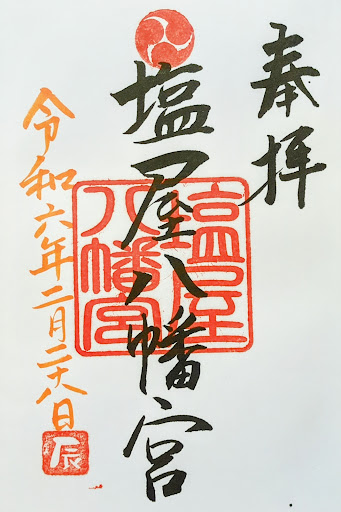 奉拝
塩屋八幡宮
塩屋
八幡宮
令和六年二月二十八日
辰